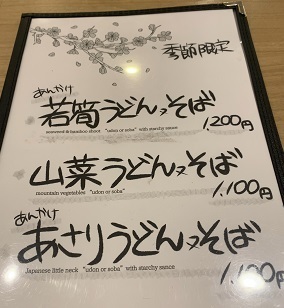 季節限定
あんかけ
若筍うどん又そば
seaweed & bamboo shoot "udon or soba" with starchy sauce
1,200円
山菜うどん又そば
mountain vegetables "udon or soba"
1,100円
あんかけ
あさりうどん又そば
Japanese little neck "udon or soba" with starchy sauce
1,100円